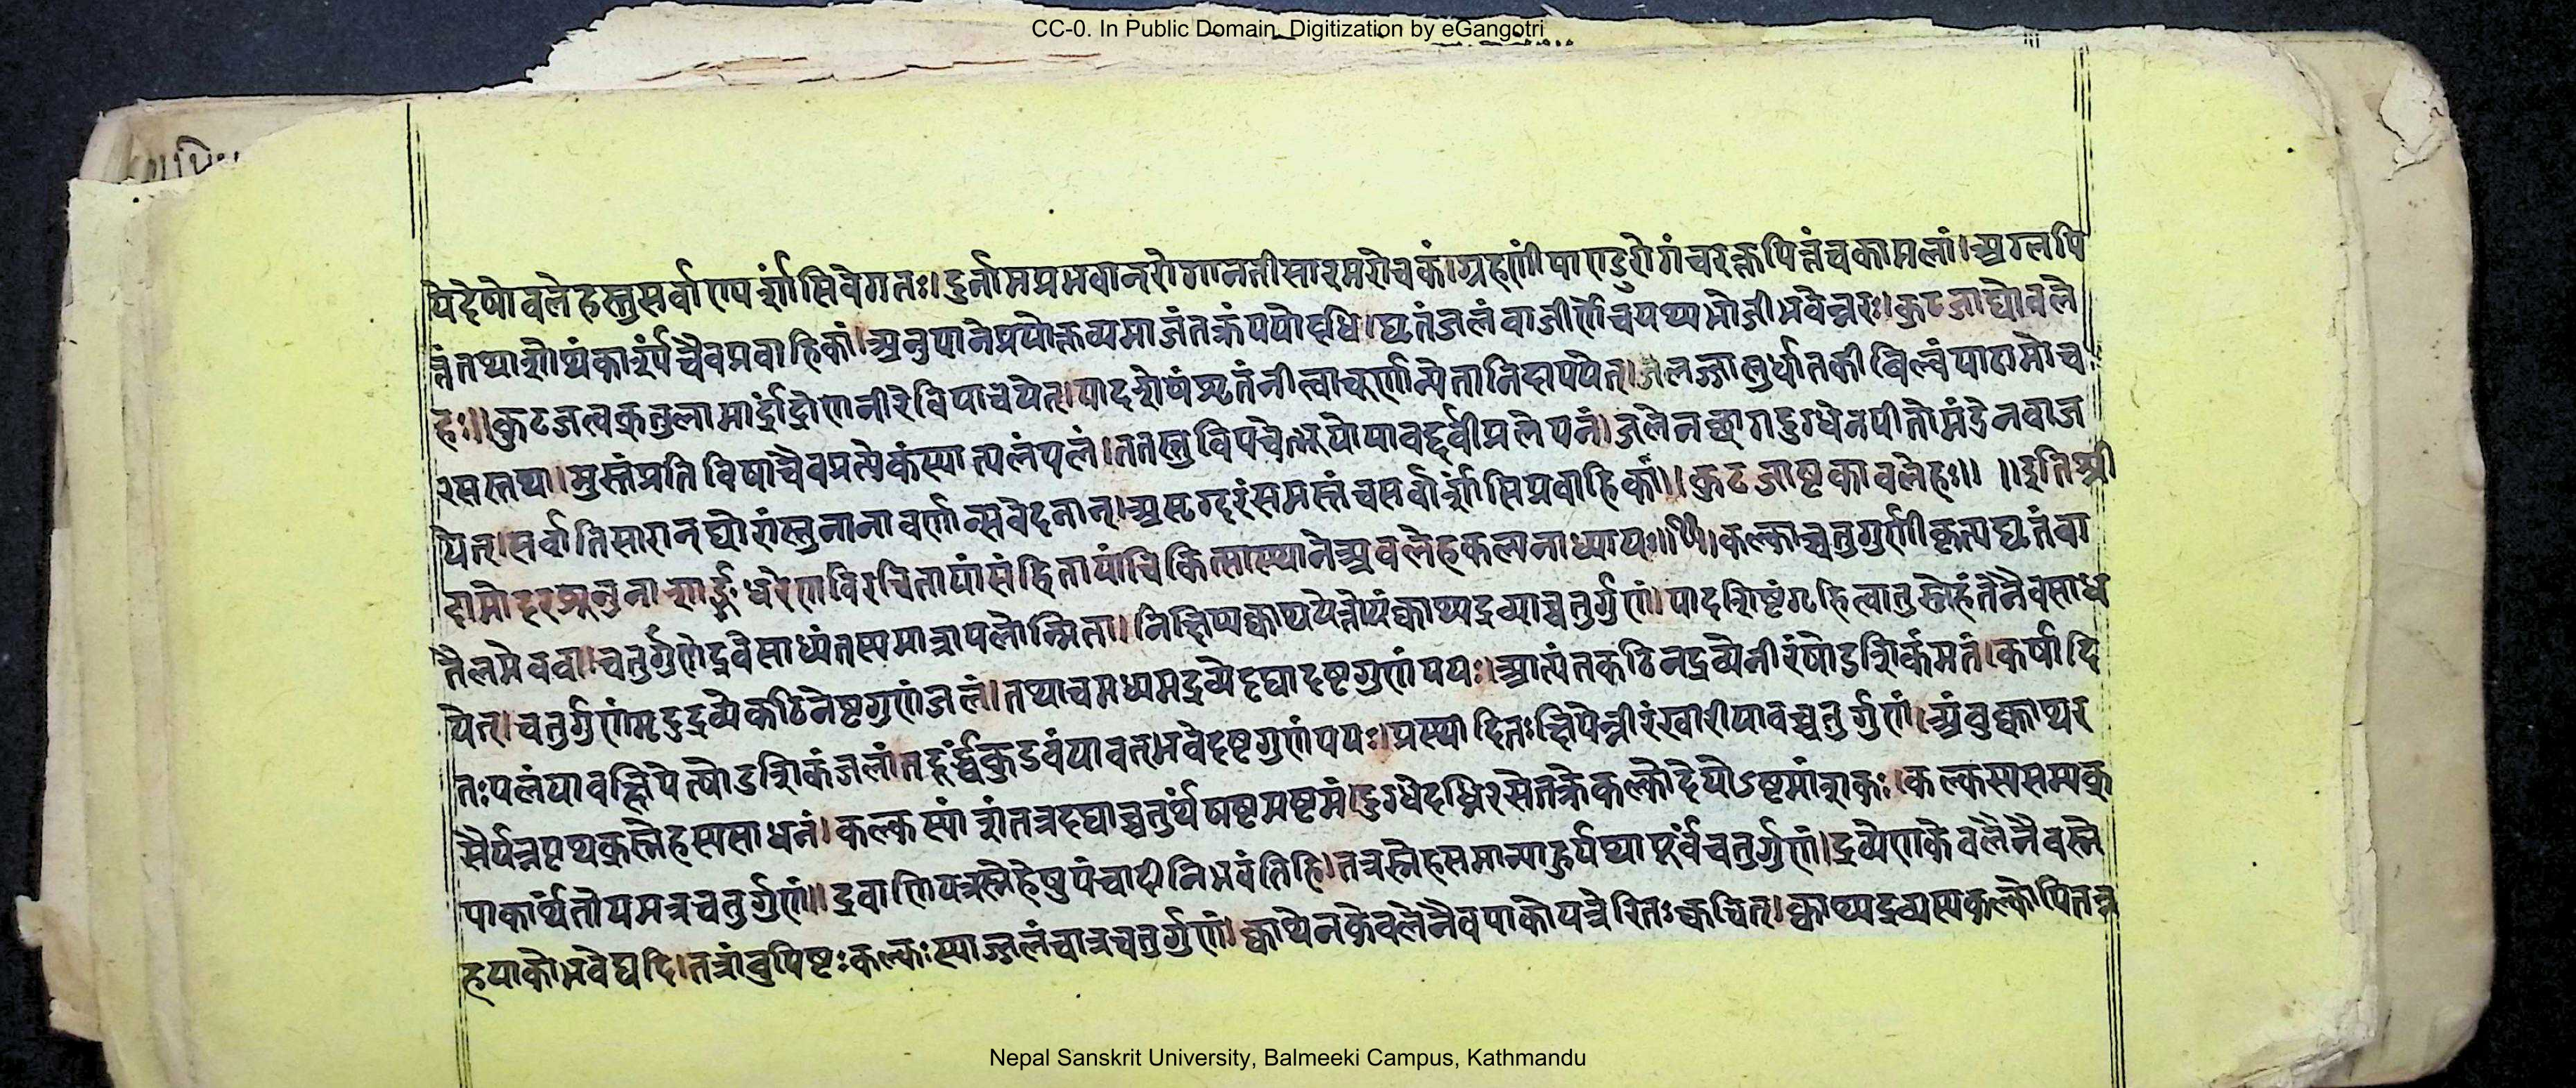 CC-0. In Public Domain. Digitization by eGangotri
येदेषोवलेहस्तुसर्वाण्यर्शांसिवेगतः।दुर्नामप्रभवान्रोगानतीसारमरोचकं।ग्रहणींपाण्डुरोगंचरक्तपित्तंचकामलां।अम्लपि
त्तंतथाशोथंकार्श्यंचैवप्रवाहिकां।अनुपानेप्रयोक्तव्यमाजंतक्रंपयोदधि।घृतंजलंवाजीर्णेचपथ्यभोजीभवेन्नरः।कुटजाद्योवले
हः।।कुटजत्वक्तुलामार्द्रांद्रोणनीरेविपाचयेत्।पादशेषंशृतंनीत्वाचूर्णान्येतानिदापयेत्।लज्जालुर्धातकीबिल्वंपाठामोच
रसस्तथा।मुस्तंप्रतिविषाचैवप्रत्येकंस्यात्पलंपलं।ततस्तुविपचेत्भूयोयावद्दर्वीप्रलेपनं।जलेनच्छागदुग्धेनपीतोमंडेनवाज
येत्।सर्वातिसारान्घोरांस्तुनानावर्णान्सवेदनान्।असृग्दरंसमस्तंचसर्वार्शांसिप्रवाहिकां।।कुटजाष्टकावलेहः।। ।।इतिश्री
दामोदरसूनुनाशार्ङ्गधरेणविरचितायांसंहितायांचिकित्सास्थानेअवलेहकल्पनाध्यायः।।कल्काच्चतुगुर्णीकृत्यघृतंवा
तैलमेववा।चतुर्गुणेद्रवेसाध्यंतस्यमात्रापलोन्मिता।निक्षिप्यक्वाथयेत्तोयंक्वाथ्यद्रव्याच्चतुर्गुणं।पादशिष्टंगृहित्वातुस्नेहंतेनैवसाध
येत्।चतुर्गुणंमृदुद्रव्येकठिनेष्टगुणंजलं।तथाचमध्यमद्रव्येदद्यादष्टगुणंपयः।आत्यंतकठिनद्रव्येनीरंषोडशिकंमतं।कर्षादि
तःपलंयावत्क्षिपेत्षोडशिकंजलं।तदूर्द्ध्वंकुडवंयावत्भवेदष्टगुणंपयः।प्रस्थादितःक्षिपेन्नीरंखारीयावच्चतुर्गुणं।अंबुक्वाथर
सैर्यत्रपृथक्स्नेहस्यसाधनं।कल्कस्यांशंतत्रदद्याच्चतुर्थंषष्टमष्टमं।दुग्धेदध्निरसेतक्रेकल्कोदेयोऽष्टमांशकः।कल्कस्यसम्यक्
पाकार्थंतोयमत्रचतुर्गुणं।।द्रवाणियत्रस्नेहेषुपंचादीनिभवंतिहि।तत्रस्नेहसमान्याहुर्यथापूर्वंचतुर्गुणं।द्रव्येणकेवलेनैवस्ने
हपाकोभवेद्यदि।तत्रांबुपिष्टःकल्कःस्याज्जलंचात्रचतुर्गुणं।क्वाथेनकेवलेनैवपाकोयत्रेरितःक्वचित्।क्वाथ्यद्रव्यस्यकल्कोपितत्र
Nepal Sanskrit University, Balmeeki Campus, Kathmandu